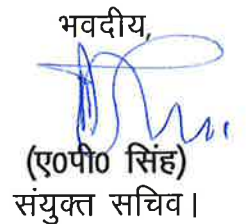 भवदीय,
(ए०पी० सिंह)
संयुक्त सचिव।